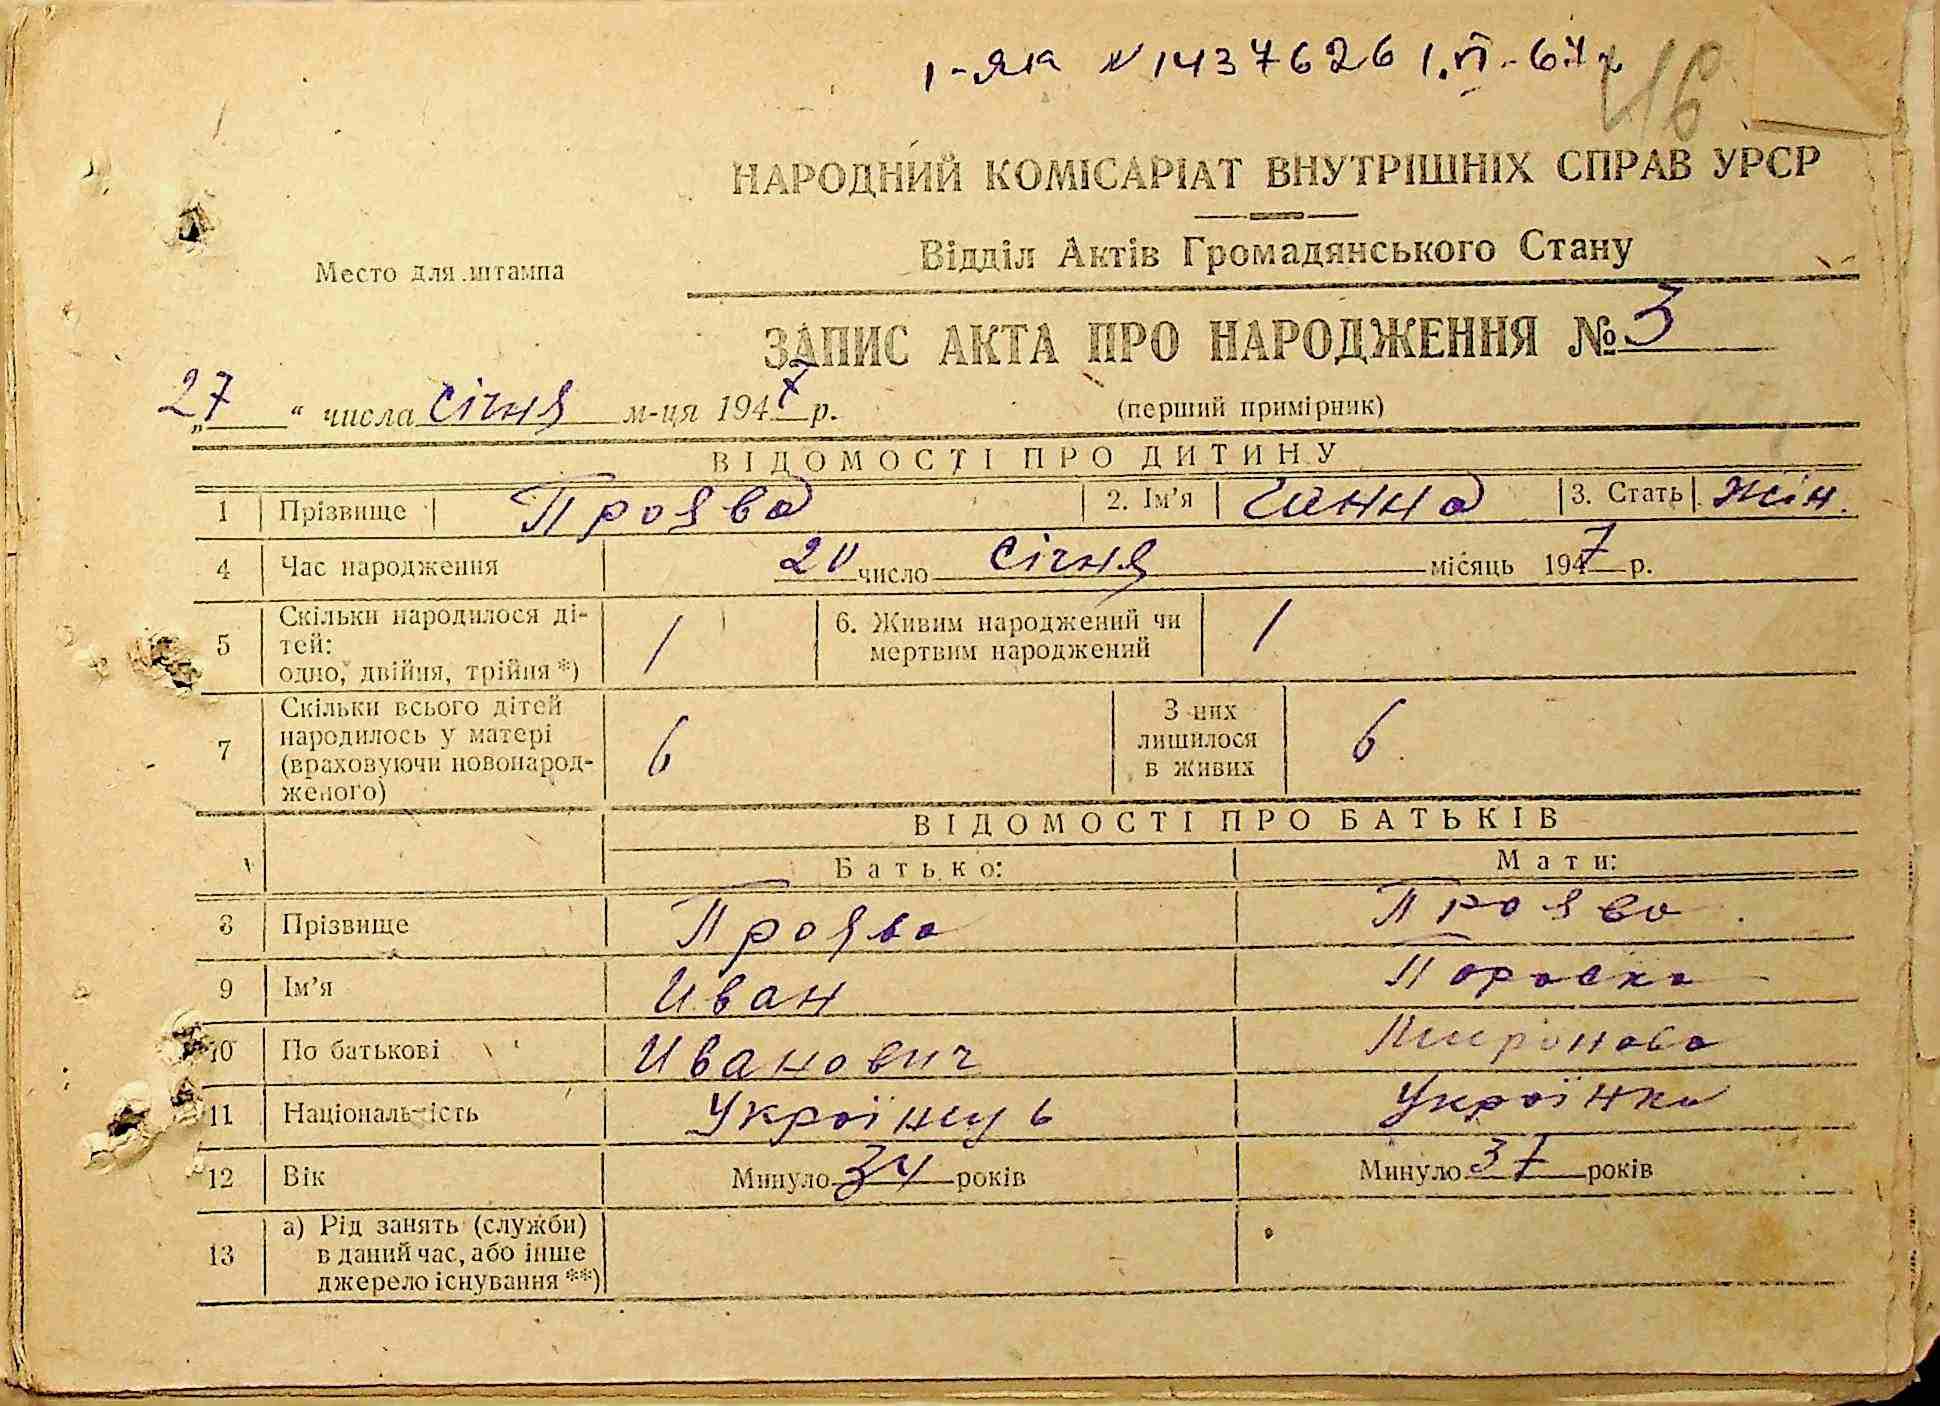 1-ЯК № 1437626 1.VI-67г
46
НАРОДНИЙ КОМІСАРІАТ ВНУТРІШНІХ СПРАВ УРСР
Відділ Актів Громадянського Стану
Место для штампа
ЗАПИС АКТА ПРО НАРОДЖЕННЯ № 3
„27“ числа січня м-ця 1947 р.
(перший примірник)
ВІДОМОСТІ ПРО ДИТИНУ
1 Прізвище Проява 2. Ім'я Ганна 3. Стать жін.
4 Час народження 20 число січня місяць 1947 р.
5 Скільки народилося ді-
тей:
одно, двійня, трійня *) 1 6. Живим народжений чи
мертвим народжений 1
7 Скільки всього дітей
народилось у матері
(враховуючи новонарод-
женого) 6 З них
лишилося
в живих 6
ВІДОМОСТІ ПРО БАТЬКІВ
Батько: Мати:
8 Прізвище Проява Проява
9 Ім'я Иван Параска
10 По батькові Иванович Миронова
11 Національність Українець Українка
12 Вік Минуло 34 років Минуло 37 років
13 а) Рід занять (служби)
в даний час, або інше
джерело існування **)